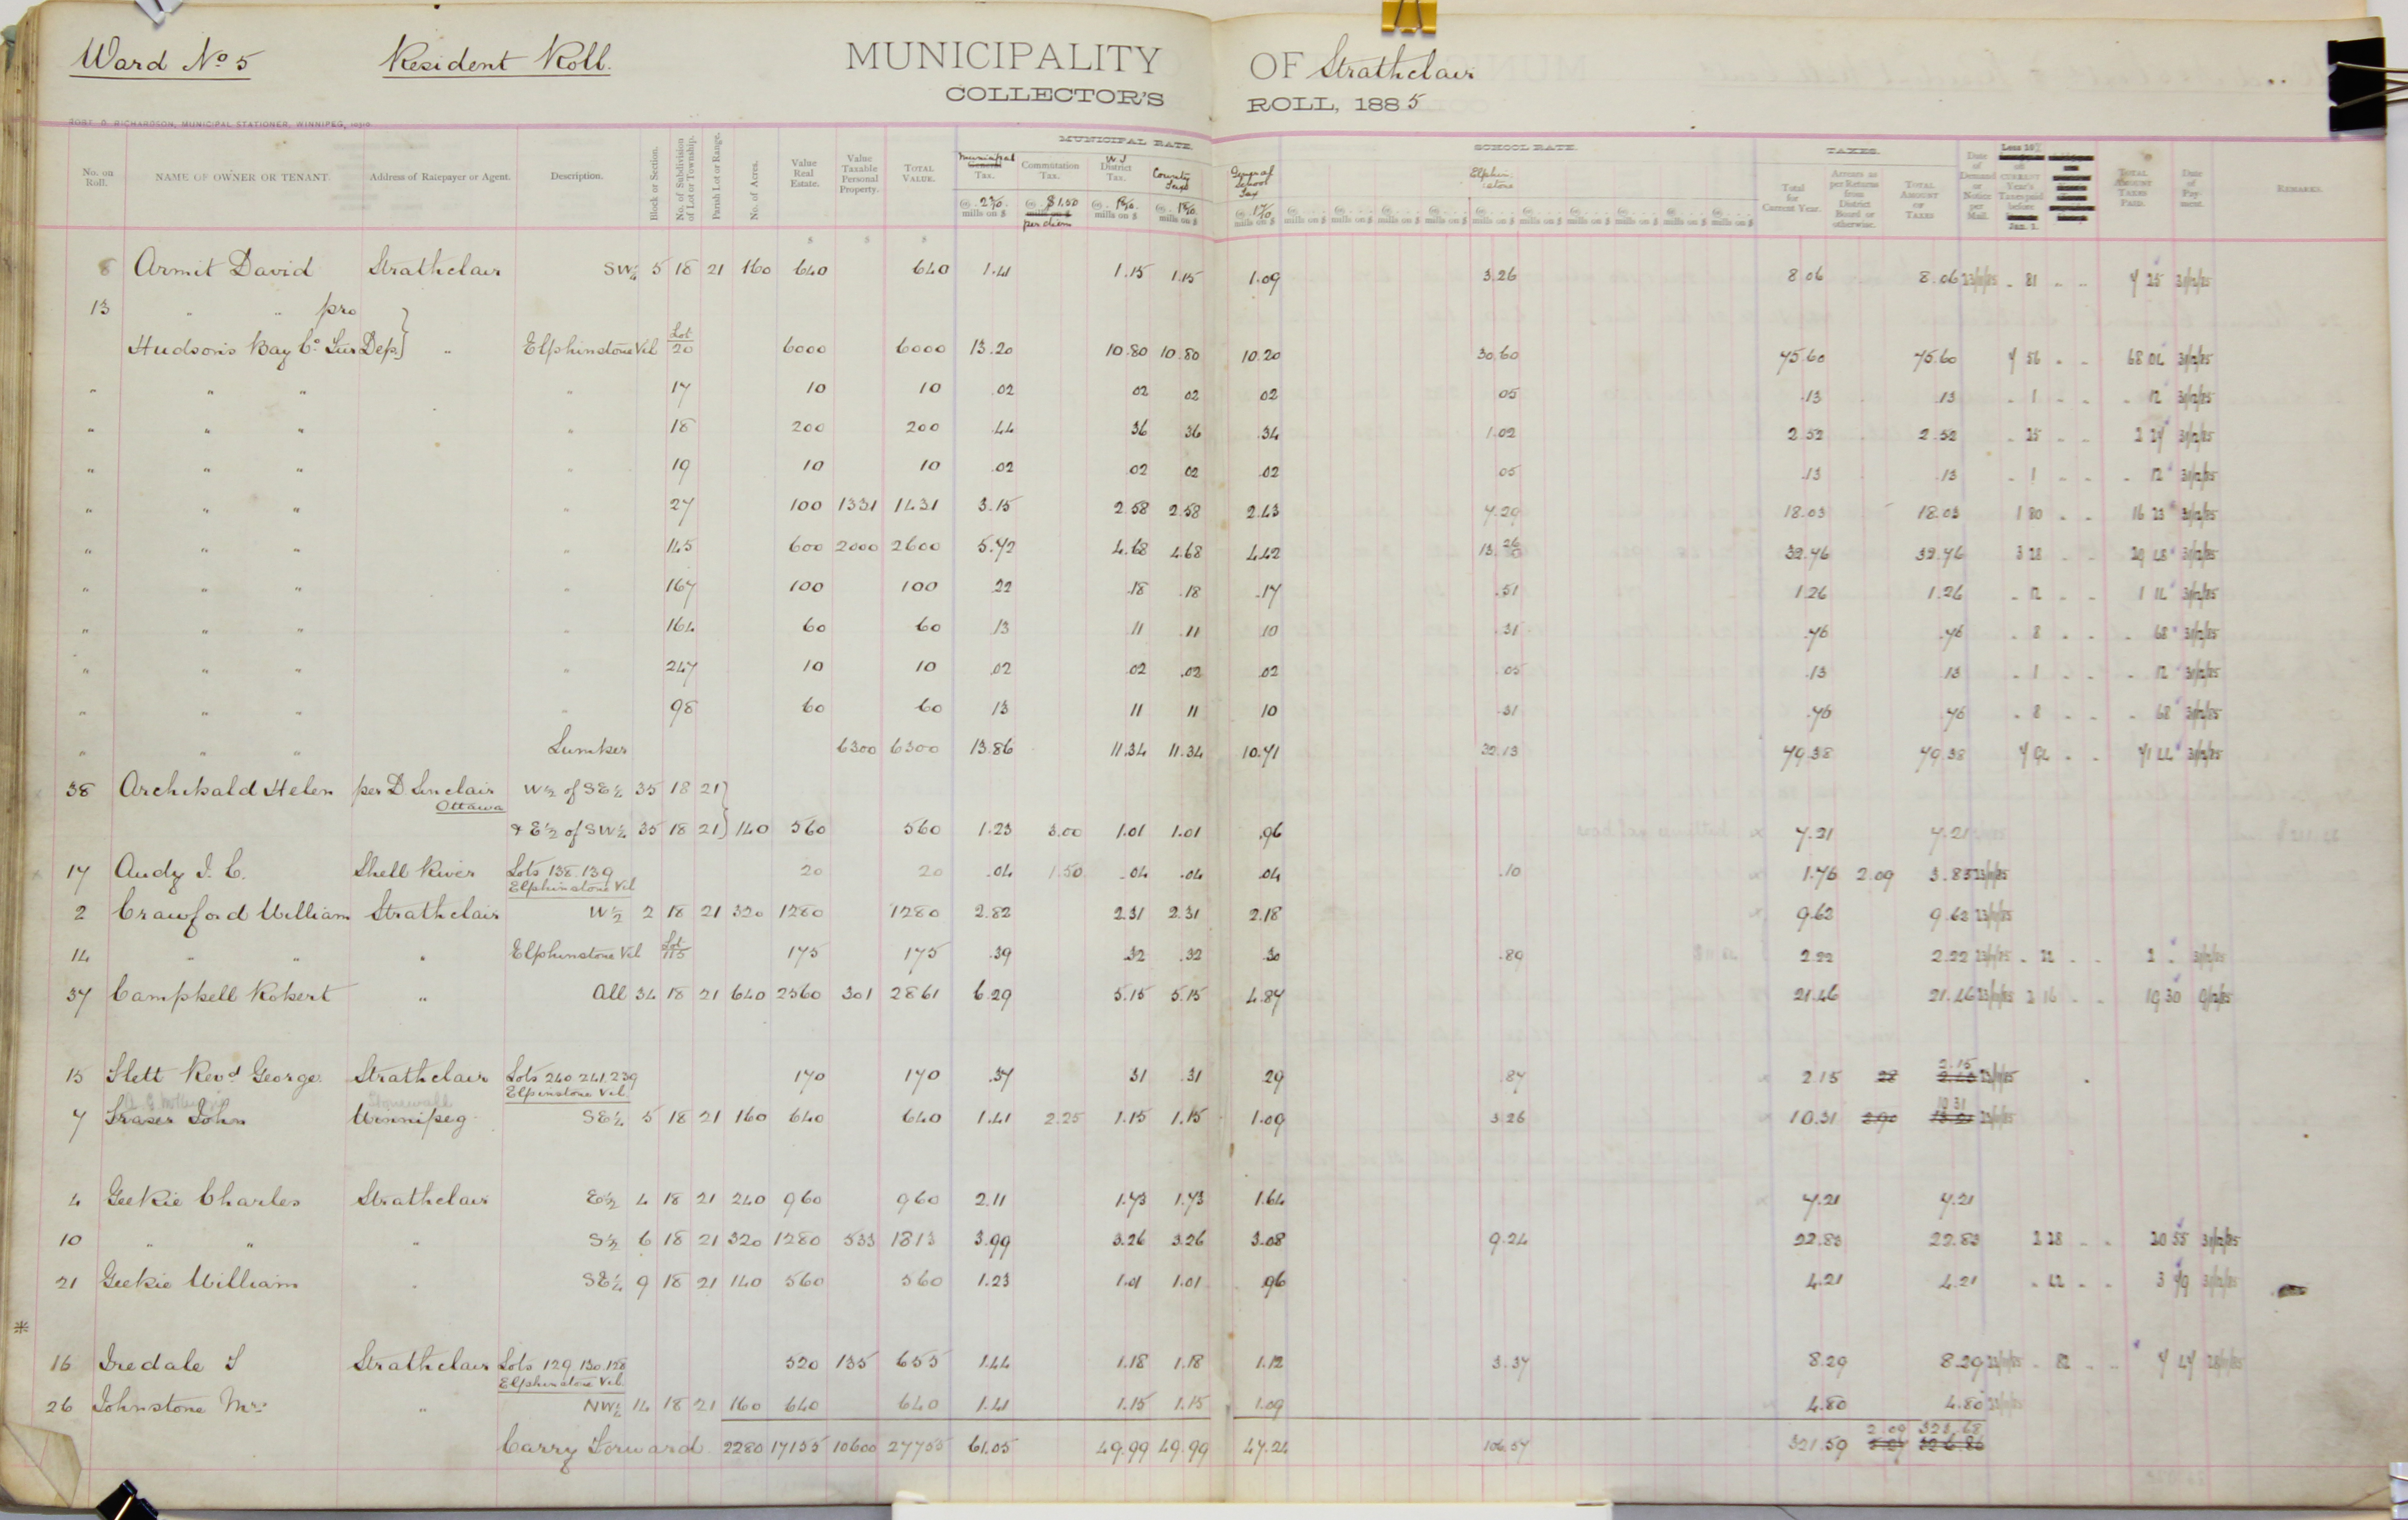 Ward No 5 Resident Roll. MUNICIPALITY OF Strathclair
COLLECTOR'S ROLL, 1885
ROBT. D. RICHARDSON, MUNICIPAL STATIONER, WINNIPEG,
MUNICIPAL RATE. SCHOOL RATE. TAXES.
No. on Roll. NAME OF OWNER OR TENANT. Address of Ratepayer or Agent. Description. Block or Section. No. of Subdivision of Lot or Township. Parish Lot or Range. No. of Acres. Value Real Estate. Value Taxable Personal Property. TOTAL VALUE. Municipal Tax. Commutation Tax. W J District Tax. County Tax General School Tax Elphinstone Total for Current Year. Arrears as per Returns from District Board or otherwise. TOTAL AMOUNT OF TAXES Date of Demand or Notice per Mail. Less 10% on CURRENT Year's Taxes paid before Jan. 1. TOTAL AMOUNT TAXES PAID. Date of Payment. REMARKS.
mills on $ @ $1.50 per diem mills on $ mills on $ mills on $ mills on $ mills on $ mills on $ mills on $ mills on $ mills on $ mills on $ mills on $ mills on $ mills on $
8 Armit David Strathclair SW¼ 5 18 21 160 640 640 1.41 1.15 1.15 1.09 3.26 8.06 8.06 23/11/85 - 81 - - 7 25 31/12/85
13 " " pro
Hudson's Bay Co. Sur Dep. } " Elphinstone Vil Lot 20 6000 6000 13.20 10.80 10.80 10.20 30.60 75.60 75.60 7 56 - - 68 04 31/12/85
" " " " 17 10 10 .02 02 02 02 05 .13 .13 - 1 - - - 12 31/12/85
" " " " 18 200 200 .44 36 36 .34 1.02 2.52 2.52 - 25 - - 2 27 31/12/85
" " " " 19 10 10 .02 02 02 .02 05 .13 .13 - 1 - - - 12 31/12/85
" " " " 27 100 1331 1431 3.15 2.58 2.58 2.43 7.29 18.03 18.03 1 80 - - 16 23 31/12/85
" " " " 145 600 2000 2600 5.72 4.68 4.68 4.42 13.26 32.76 32.76 3 28 - - 29 48 31/12/85
" " " " 167 100 100 .22 .18 .18 .17 .51 1.26 1.26 - 12 - - 1 14 31/12/85
" " " " 164 60 60 .13 11 .11 10 .31 .76 .76 - 8 - - - 68 31/12/85
" " " " 247 10 10 .02 02 .02 .02 .05 .13 .13 - 1 - - - 12 31/12/85
" " " " 98 60 60 13 11 11 10 .31 .76 .76 - 8 - - - 68 31/12/85
" " " Lumber 6300 6300 13.86 11.34 11.34 10.71 32.13 79.38 79.38 7 94 - - 71 44 31/12/85
38 Archibald Helen per D Sinclair W½ of SE¼ 35 18 21 }
Ottawa
& E½ of SW¼ 35 18 21 } 140 560 560 1.23 3.00 1.01 1.01 .96 7.21 7.21
17 Audy J. C. Shell River Lots 138.139 20 20 .04 1.50 .04 .04 .04 .10 1.76 2.09 3.85 23/11/85
Elphinstone Vil
2 Crawford William Strathclair W½ 2 18 21 320 1280 1280 2.82 2.31 2.31 2.18 9.62 9.62 23/11/85
14 " " " Elphinstone Vil Lot 115 175 175 .39 .32 .32 .30 .89 2.22 2.22 23/11/85 - 22 - - 2 - 31/12/85
37 Campbell Robert " All 34 18 21 640 2560 301 2861 6.29 5.15 5.15 4.87 21.46 21.46 23/11/85 2 16 - - 19 30 9/12/85
15 Flett Revd George. Strathclair Lots 240 241.239 170 170 .37 31 .31 29 .87 2.15 28 2.15 23/11/85
Elphinstone Vil
Stonewall
7 Fraser John Winnipeg SE¼ 5 18 21 160 640 640 1.41 2.25 1.15 1.15 1.09 3.26 10.31 2.90 10 31 23/11/85
4 Geekie Charles Strathclair E½ 4 18 21 240 960 960 2.11 1.73 1.73 1.64 7.21 7.21
10 " " " S½ 6 18 21 320 1280 533 1813 3.99 3.26 3.26 3.08 9.24 22.83 22.83 2 28 - - 20 55 31/12/85
21 Geekie William " SE¼ 9 18 21 140 560 560 1.23 1.01 1.01 96 4.21 4.21 - 42 - - 3 79 31/12/85
*
16 Iredale T Strathclair Lots 129 130.128 520 135 655 1.44 1.18 1.18 1.12 3.37 8.29 8.29 23/11/85 - 82 - - 7 47 28/11/85
Elphinstone Vil.
26 Johnstone Mrs " NW¼ 14 18 21 160 640 640 1.41 1.15 1.15 1.09 4.80 4.80 23/11/85
2.09 323.68
Carry Forward. 2280 17155 10600 27755 61.05 49.99 49.99 47.24 106.57 321.59 326.86